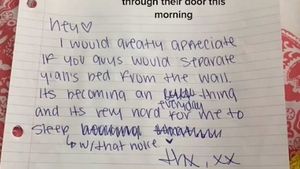 through their door this
morning
Hey♡
I would greatly appreciate
if you guys would separate
y'all's bed from the wall.
Its becoming an everyday thing
and its very hard for me to
sleep
↳ w/ that noise
thx, xx